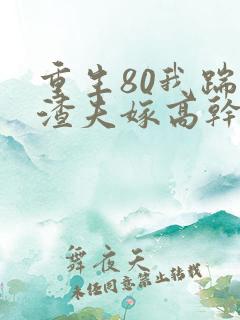 重生80我踹
渣夫嫁高幹
舞夜天
未经同意禁止转载